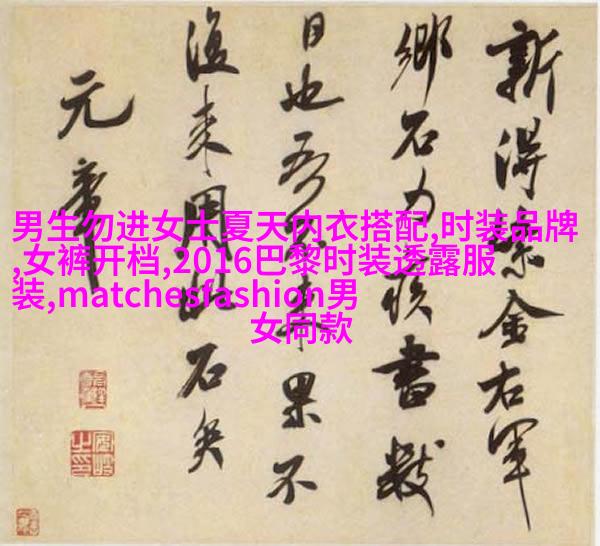 男生勿进女士夏天内衣搭配,时装品牌
,女裤开档,2016巴黎时装透露服
装,matchesfashion男
女同款
新得紫金右軍
鄉石力疾書數
日也吾不來果不
復來用此石矣
元章